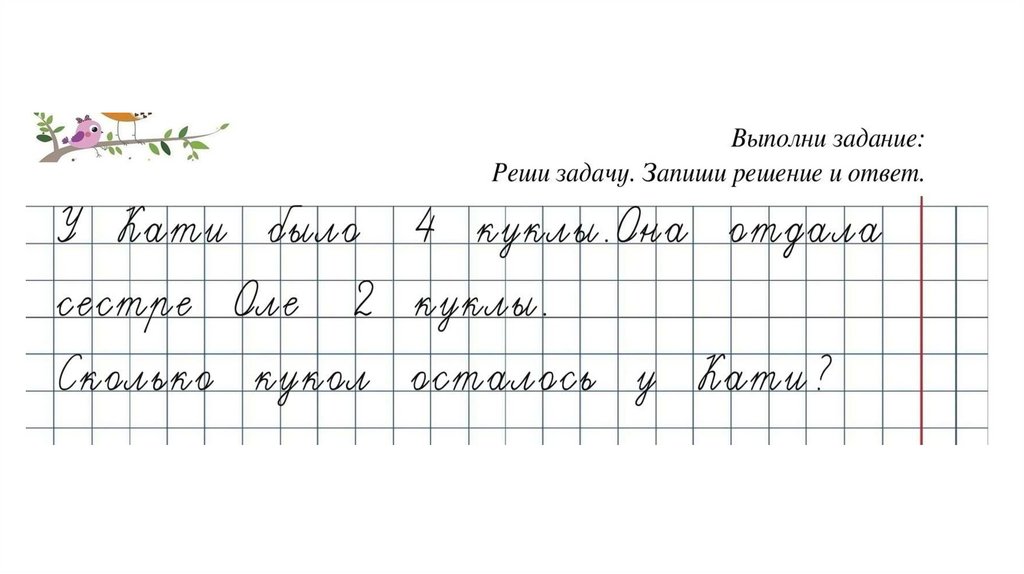 Выполни задание:
Реши задачу. Запиши решение и ответ.
У Кати было 4 куклы.Она отдала
сестре Оле 2 куклы.
Сколько кукол осталось у Кати?